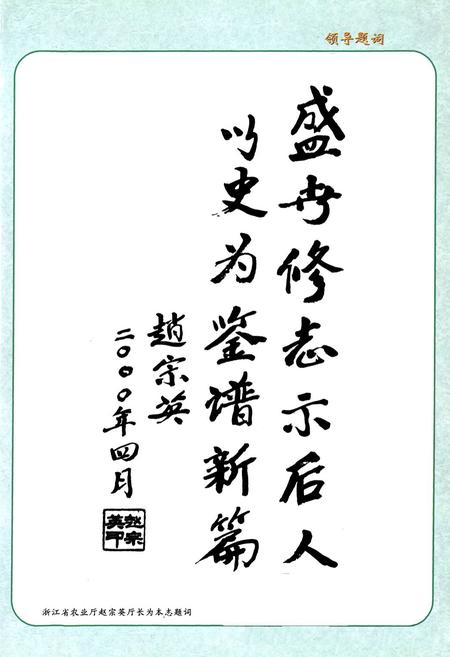 领导题词
盛世修志示后人
以史为鉴谱新篇
趙宗英
二〇〇〇年四月
赵宗英印
浙江省农业厅赵宗英厅长为本志题词